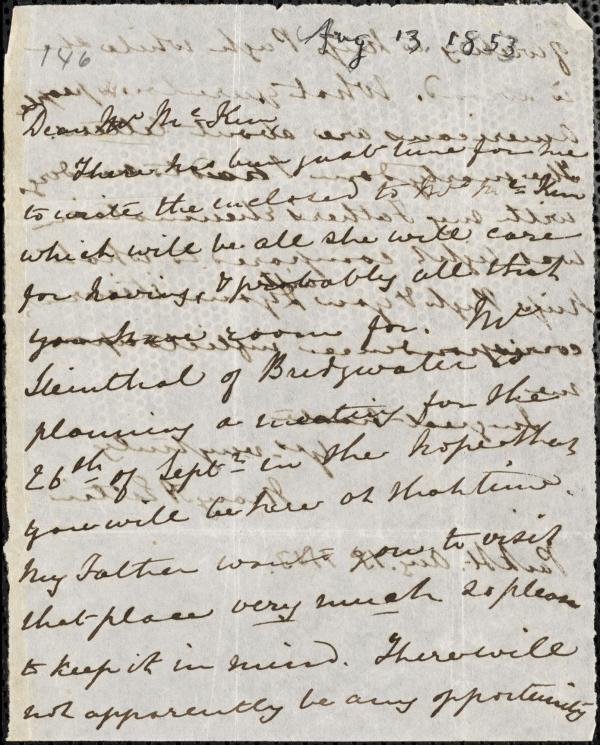 Aug 13 1853
146
Dear Mr McKim
There has been just time for me
to write the inclosed to Mrs McKim
which will be all she will care
for having, & probably all that
you have room for. Mr
Steinthal of Bridgwater is
planning a meeting for the
26th of Septr in the hope that
you will be here at that time.
My Father wants you to visit
that place very much so please
to keep it in mind. There will
not apparently be any opportunity